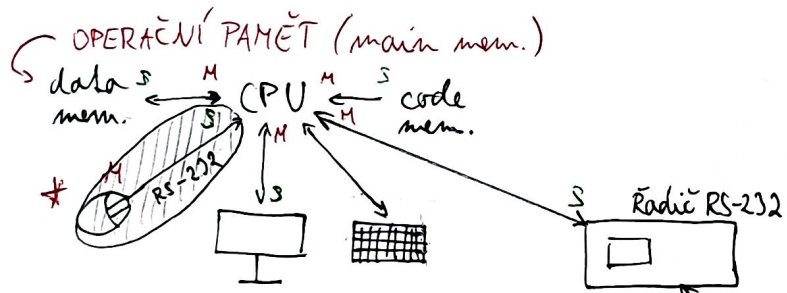 OPERAČNÍ PAMĚT (main mem.)
data S M CPU M S code
mem. S M M mem.
* M RS-232
S S Řadič RS-232